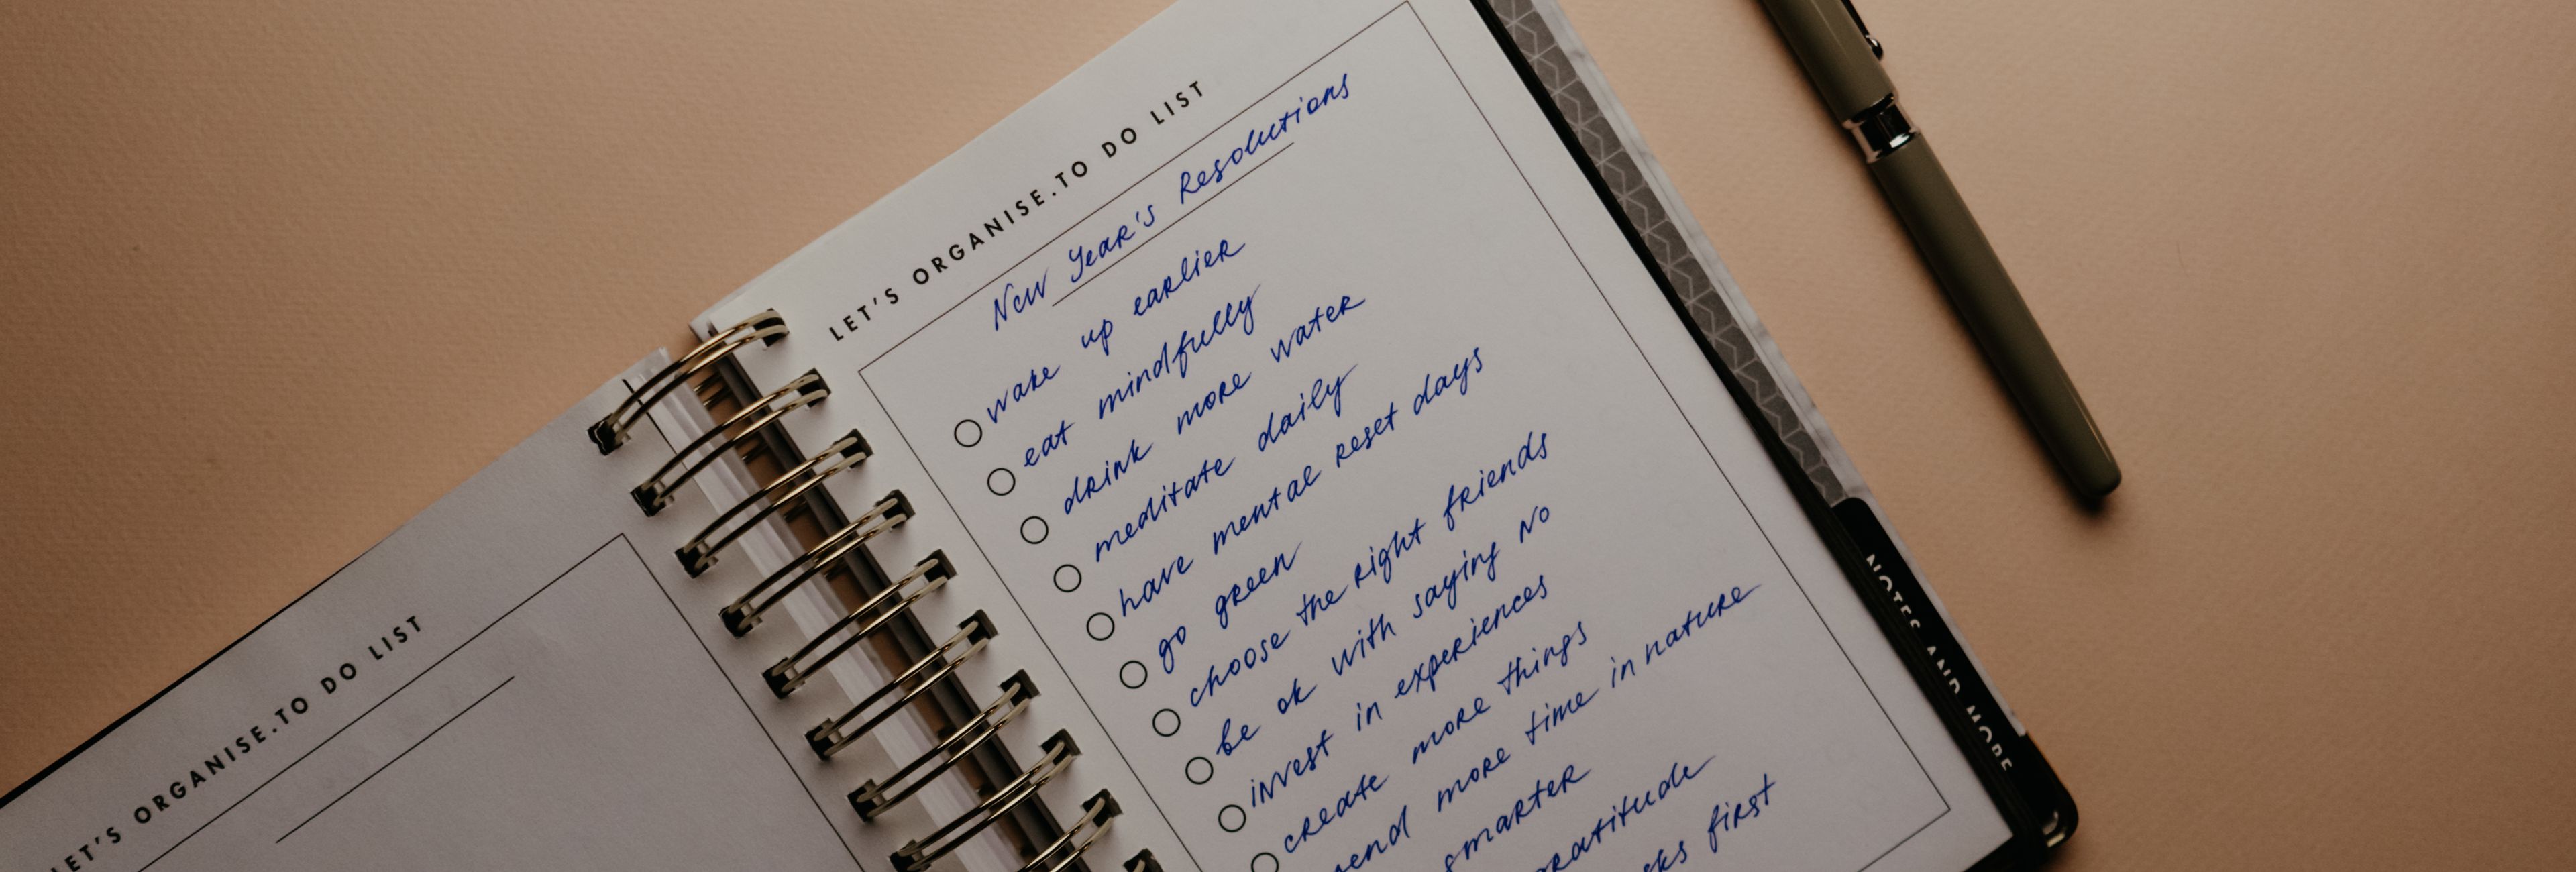 LET'S ORGANISE.TO DO LIST
LET'S ORGANISE.TO DO LIST
New Year's Resolutions
wake up earlier
eat mindfully
drink more water
meditate daily
have mental reset days
go green
choose the right friends
be ok with saying NO
invest in experiences
create more things
more time in nature
smarter
first
NOTES AND MORE